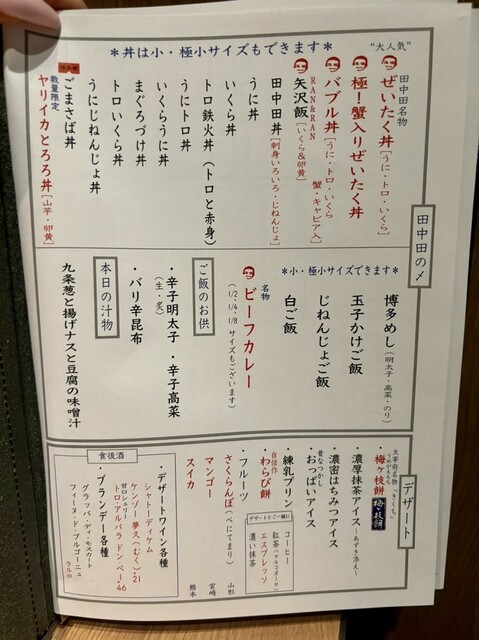 田中田の〆
＊丼は小・極小サイズもできます＊
“大人気”
田中田名物
ぜいたく丼［うに・トロ・いくら］
極！蟹入りぜいたく丼
バブル丼［うに・トロ・いくら
蟹・キャビア入］
RAN&RAN
矢沢飯［いくら&卵黄］
田中田丼［刺身いろいろ・じねんじょ］
うに丼
いくら丼
トロ鉄火丼（トロと赤身）
うにトロ丼
いくらうに丼
まぐろづけ丼
トロいくら丼
うにじねんじょ丼
ごまさば丼
数量限定
ヤリイカとろろ丼［山芋・卵黄］
＊小・極小サイズできます＊
博多めし（明太子・高菜・のり）
玉子かけご飯
じねんじょご飯
白ご飯
名物
ビーフカレー
（1/2、1/4、1/8 サイズもございます）
ご飯のお供
・辛子明太子 ・辛子高菜
（生・炙）
・バリ辛昆布
本日の汁物
九条葱と揚げナスと豆腐の味噌汁
デザート
太宰府名物「きくち」
うめがえもち
・梅ヶ枝餅 梅ヶ枝餅
・濃厚抹茶アイス〜あずき添え〜
・濃密はちみつアイス
昔なつかし
・おっぱいアイス
・練乳プリン
自信作
・わらび餅
・フルーツ
さくらんぼ（べにてまり） 山形
マンゴー 宮崎
スイカ 熊本
デザートとご一緒に
コーヒー
紅茶（マルコポーロ）
エスプレッソ
濃い抹茶
食後酒
・デザートワイン各種
シャトーディケム
甘口シャブリ
ケンゾー夢久（むく）・21
トロアルバラ ドン・ペー・46
・ブランデー各種
グラッパ・ディ・モスカート
フィーヌ・ド・ブルゴーニュ